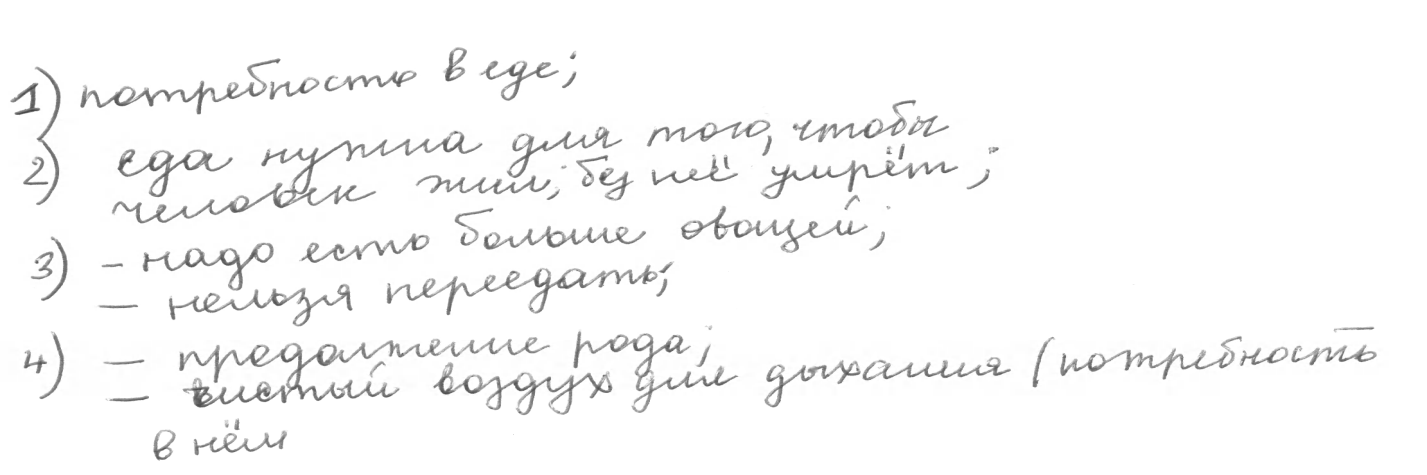 1) потребность в еде;
2) еда нужна для того, чтобы
человек жил, без неё умрёт;
3) - надо есть больше овощей;
- нельзя переедать;
4) - продолжение рода;
- чистый воздух для дыхания (потребность
в нём